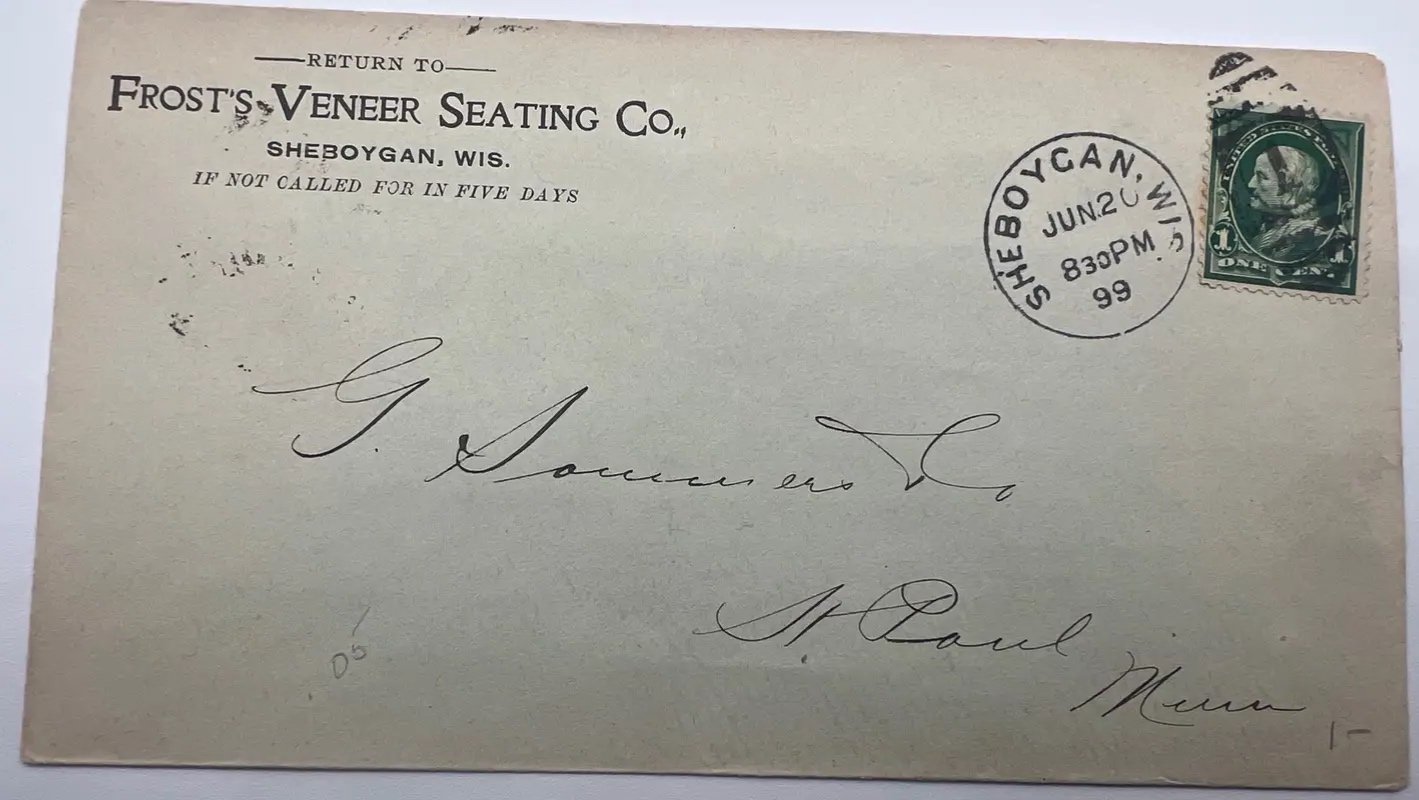 RETURN TO
FROST'S VENEER SEATING CO.,
SHEBOYGAN, WIS.
IF NOT CALLED FOR IN FIVE DAYS
SHEBOYGAN, WIS.
JUN 20
830PM
99
UNITED STATES
1 1
ONE CENT
G. Sommers & Co
St. Paul
Minn
1-